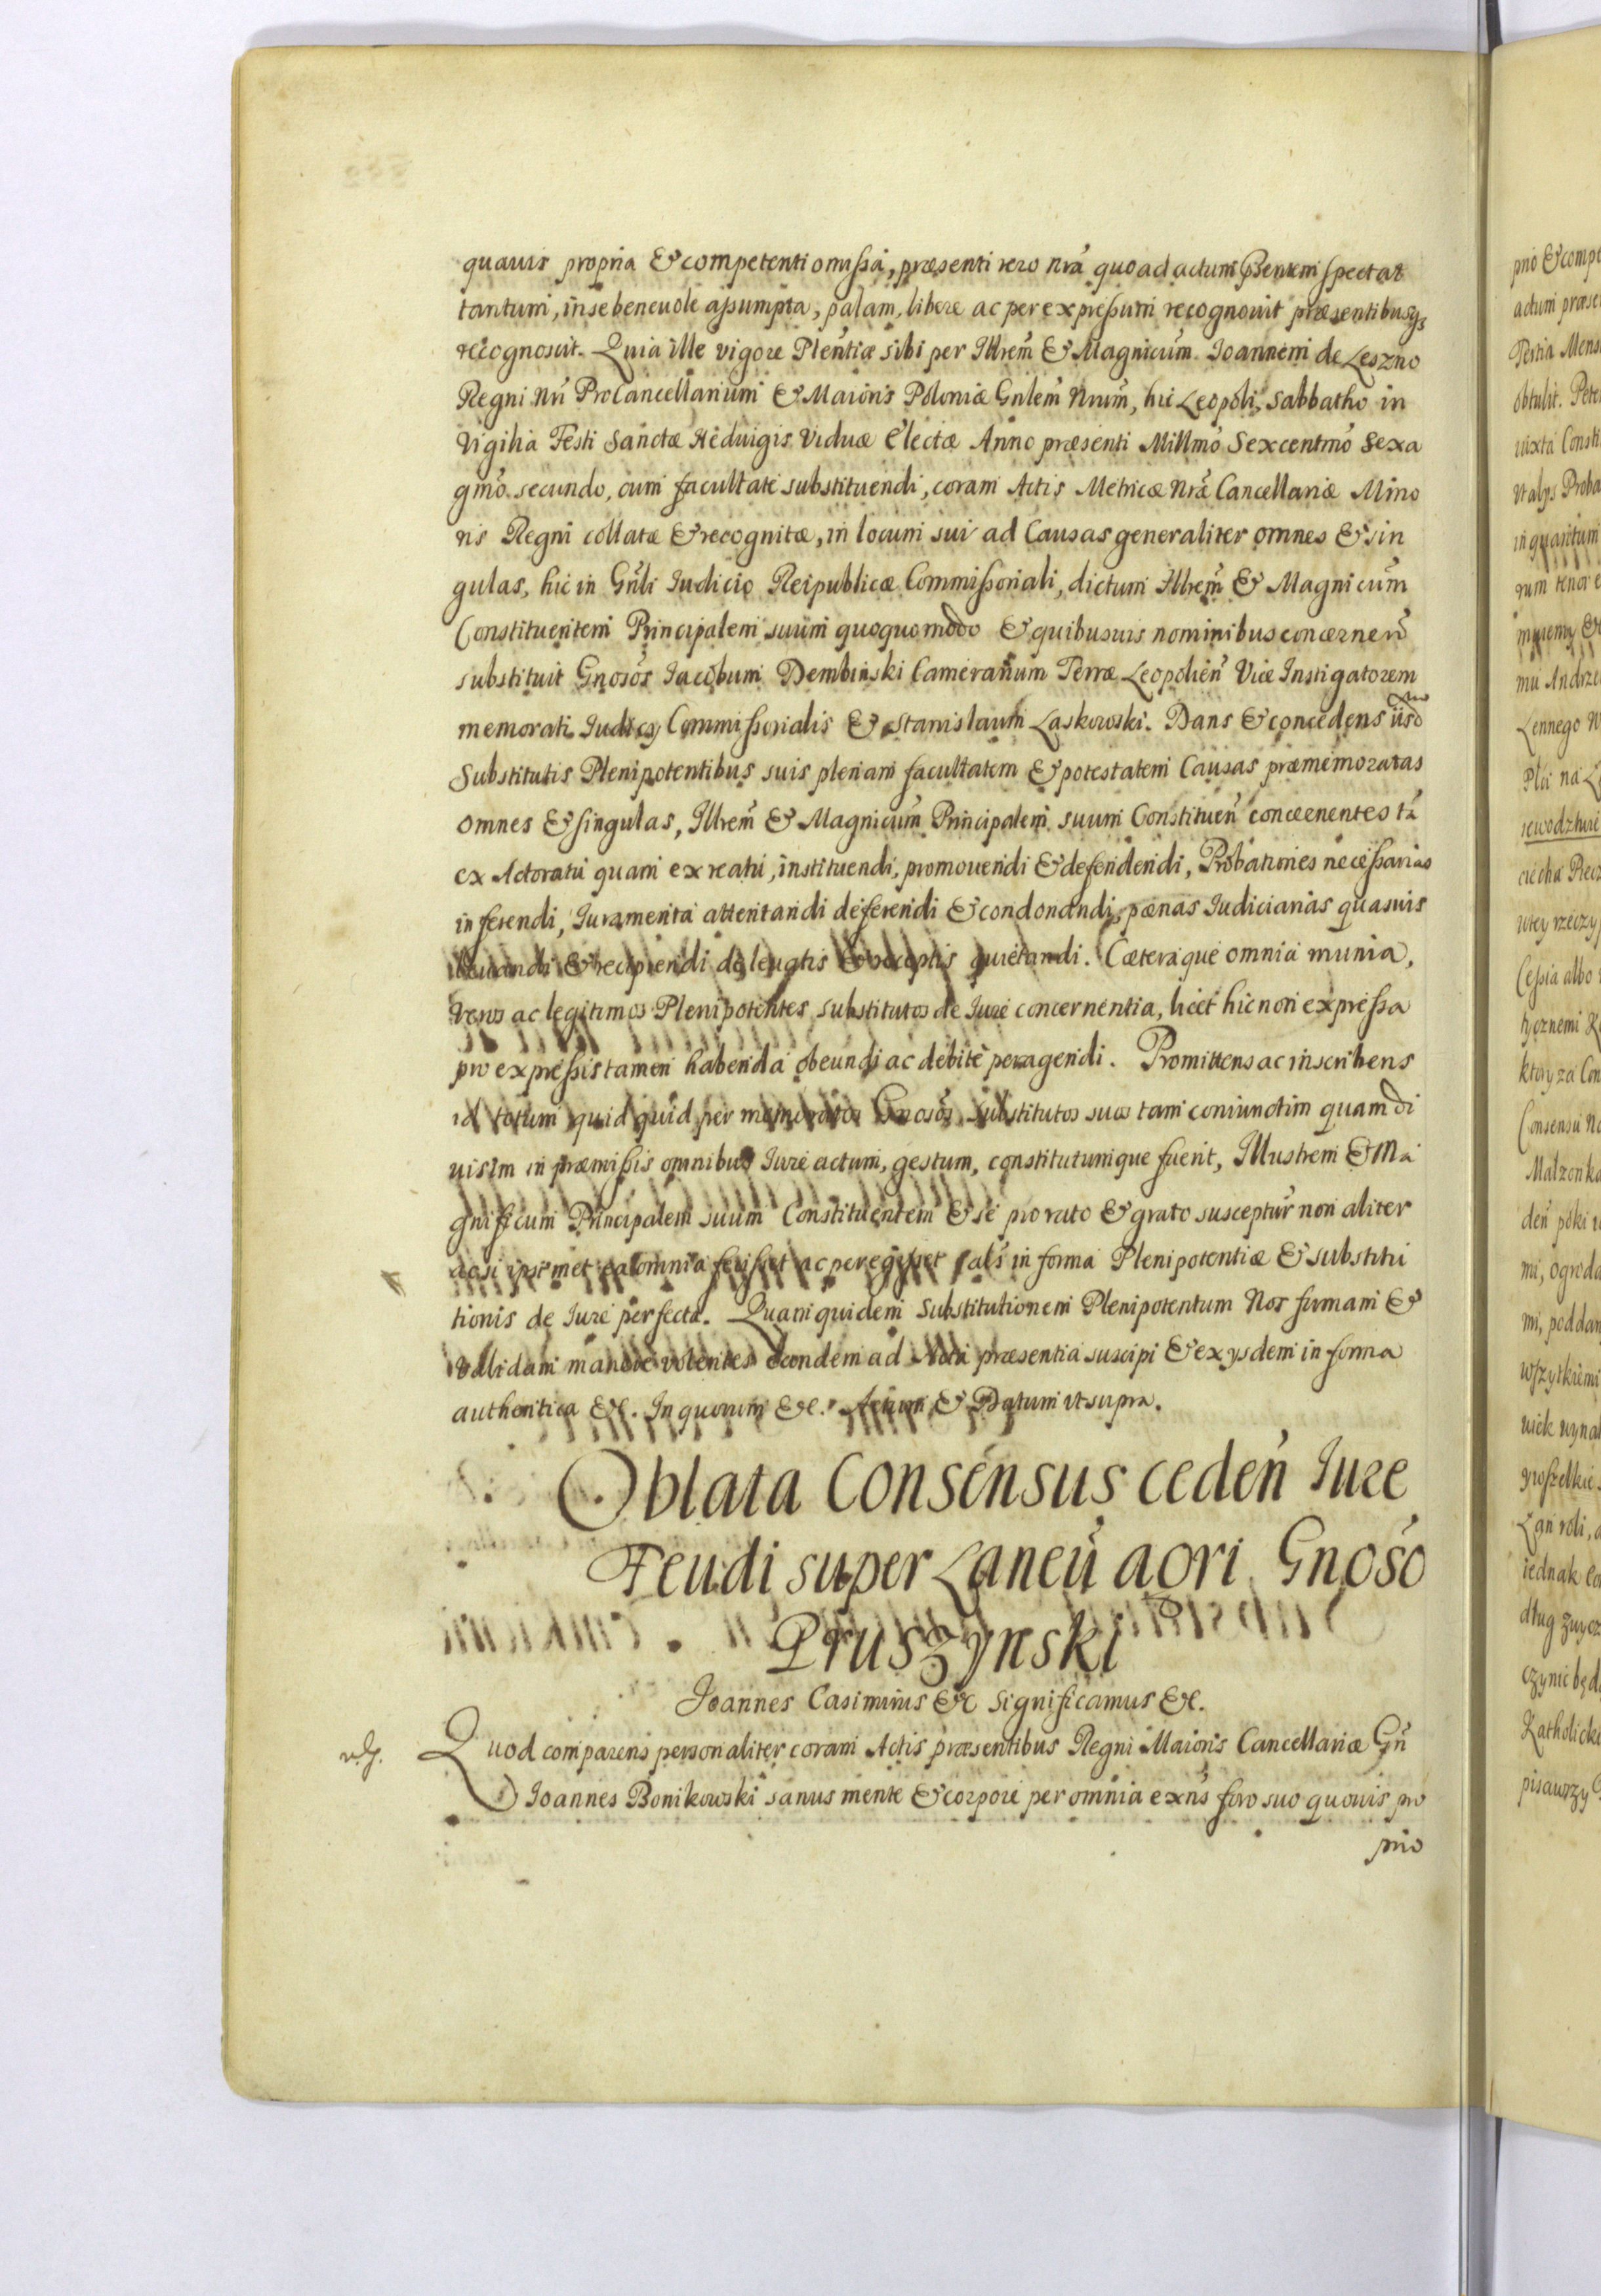 quauis propria & competenti omissa, præsenti vero nrã quoad actum psentem spectat
tantum, in se beneuole assumpta, palam, libere ac per expressum recognouit præsentibusqs
recognoscit. Quia ille vigore Plentiæ sibi per Illrem̃ & Magnicum̃ Joannem de Leszno
Regni Nrĩ ProCancellarium & Maioris Poloniæ Gnlem̃ Nrum̃, hic Leopoli, Sabbatho in
Vigilia Festi Sanctæ Heduigis Viduæ Electæ Anno præsenti Millmõ Sexcentmõ Sexa
gmõ secundo, cum facultate substituendi, coram Actis Metricæ Nræ̃ Cancellariæ Mino
ris Regni collatæ & recognitæ, in locum sui ad Causas generaliter omnes & sin
gulas, hic in Gñli Judicio Reipublicæ Commissoriali, dictum Illrem̃ & Magnicum̃
Constituentem Principalem suum quoquomodo & quibusuis nominibus concerneñ
substituit Gnosõs Jacobum Dembinski Camerarium Terræ Leopolieñ Vice Instigatorem
memorati Judicij Commissorialis & Stanislaum Laskowski. Dans & concedens iisd
Substitutis Plenipotentibus suis plenam facultatem & potestatem Causas præmemoratas
omnes & singulas, Illrem̃ & Magnicum̃ Principalem suum Constitueñ concernentes tã
ex Actoratu quam ex reatu, instituendi, promouendi & defendendi, Probationes necessarias
inferendi, Juramenta attentandi deferendi & condonandi, pænas Judiciarias quasuis
leuandi & recipiendi de leuatis & receptis quietandi. Cæteraque omnia munia,
veros ac legitimos Plenipotentes substitutos de Jure concernentia, licet hic non expressa
pro expressis tamen habenda obeundi ac debite peragendi. Promittens ac inscribens
id totum quidquid per memoratos Gnosõs Substitutos suos tam coniunctim quam di
uisim in præmissis omnibus Jure actum, gestum, constitutumque fuerit, Illustrem & Ma
gnificum Principalem suum Constituentem & se pro rato & grato susceptur̃ non aliter
acsi ipsimet ea omnia fecisset ac peregisset saluĩs in forma Plenipotentiæ & substitu
tionis de Jure perfecta. Quam quidem Substitutionem Plenipotentum Nos firmam &
validam manere volentes eandem ad Acta præsentia suscipi & ex ysdem in forma
authentica &c. In quorum &c. Actum & Datum ut supra.
Oblata Consensus cedeñ Jure
Feudi super Laneũ agri Gnosõ
Pruszynski
Joannes Casimirus &c Significamus &c.
Quod comparens personaliter coram Actis præsentibus Regni Maioris Cancellariæ Gñ
Joannes Bonikowski sanus mente & corpore per omnia exñs foro suo quouis pro
prio